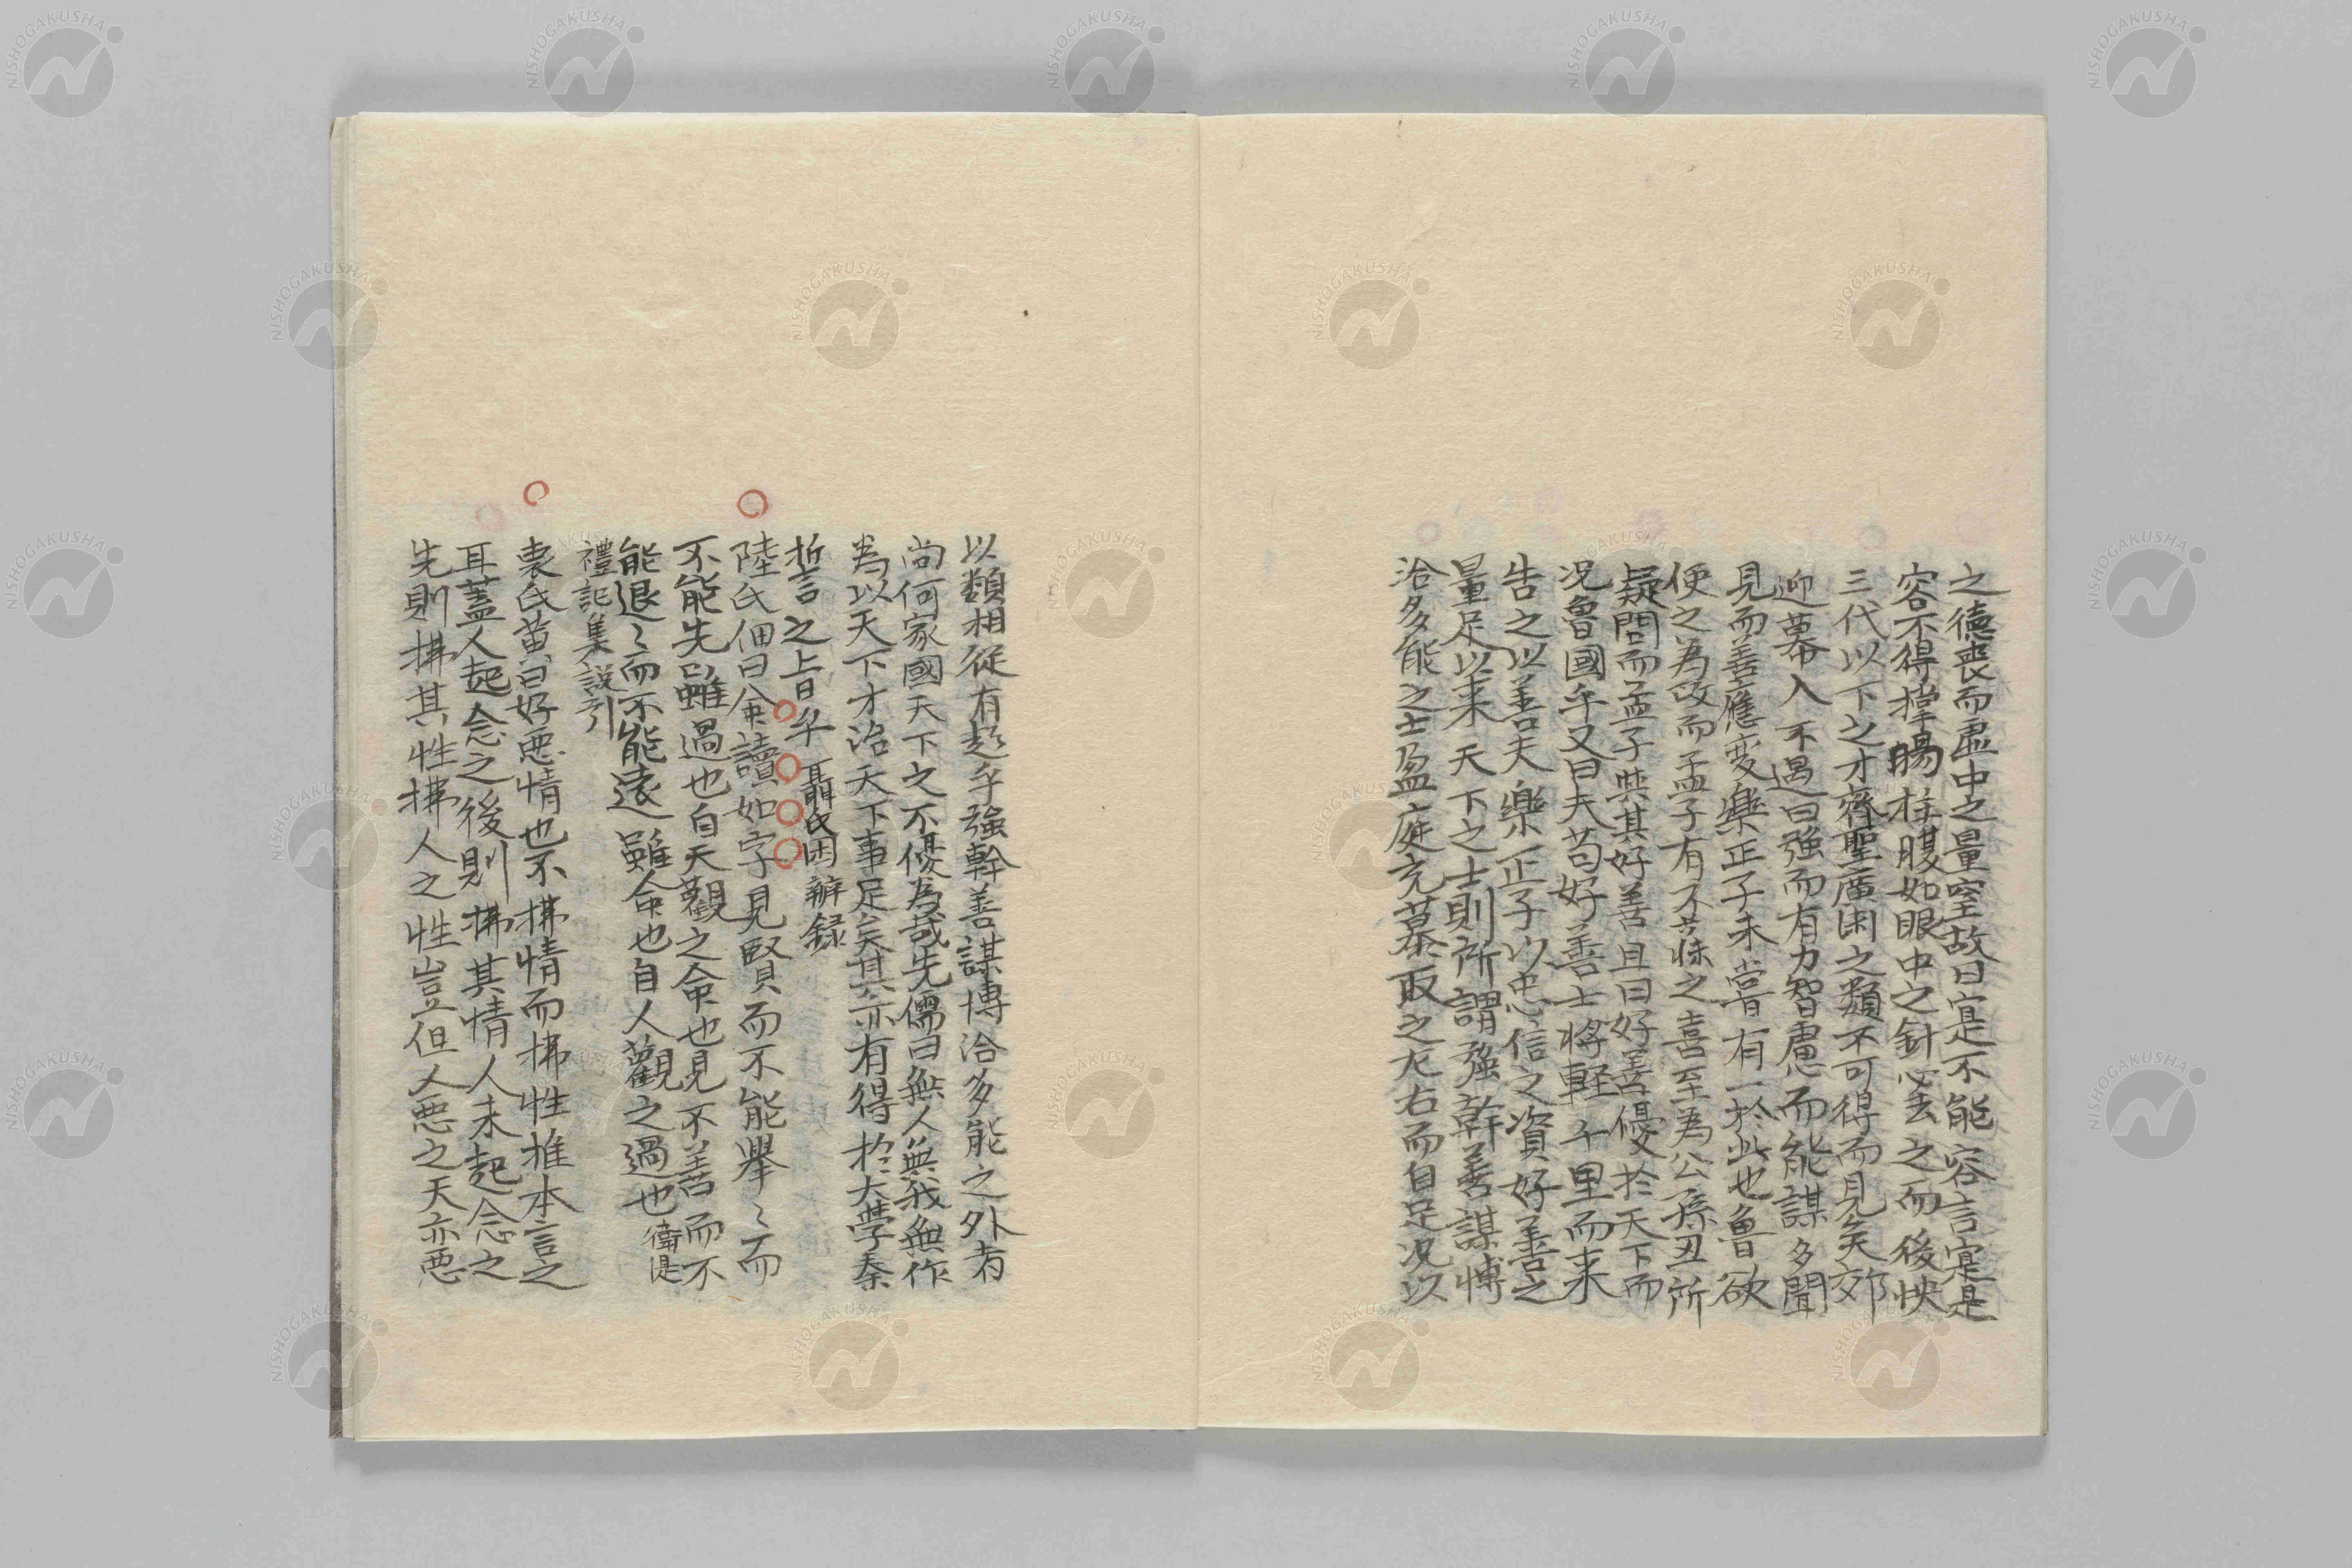 之德喪而虛中之量窒故曰寔不能容言寔是
容不得撑腸柱腹如眼中之針必去之而後快
三代以下之才齊聖廣淵之類不可得而見矣
迎幕入不過曰強而有力智慮而能謀多聞
見而善應変樂正子未嘗有一於此也魯欲
便之為政而孟子有不寐之喜至為公孫丑所
疑問而孟子与其好善且曰好善優於天下而
况魯國乎又曰夫苟好善士将軽千里而来
告之以善夫樂正子以忠信之資好善之
量足以来天下之士則所謂強幹善謀博
洽多能之士盈庭充幕取之左右而自足况以
以類相從有超乎強幹善謀博洽多能之外者
尚何家國天下之不優為哉先儒曰無人無我無作
為以天下才治天下事足矣其亦有得於大學秦
誓言之上日乎 聶氏困辯録
陸氏佃曰命讀如字見賢而不能舉〻而
不能先己雖過也自天觀之命也見不善而不
能退〻而不能遠雖命也自人觀之過也 衛湜
禮記集説引
袁氏黄曰好悪情也不拂情而拂性推本言之
耳蓋人起念之後則拂其情人未起念之
先則拂其性拂人之性豈但人悪之天亦悪
NISHOGAKUSHA